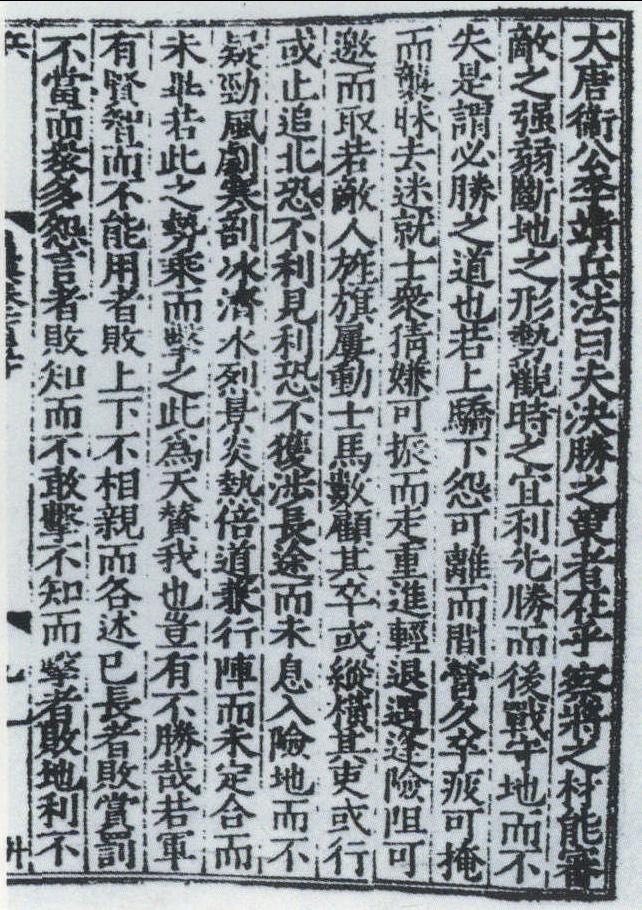 大唐衛公李靖兵法曰夫決勝之策者在乎察將之材能審
敵之强弱斷地之形勢觀時之宜利先勝而後戰守地而不
失是謂必勝之道也若上驕下怨可離而間營久卒疲可掩
而襲昧去迷就士衆猜嫌可振而走重進輕退遇逢險阻可
邀而取若敵人旌旗屢動士馬數顧其卒或縱橫其吏或行
或止追北恐不利見利恐不獲涉長途而未息入險地而不
疑勁風劇寒剖冰濟水烈景炎熱倍道兼行陣而未定合而
未畢若此之勢乘而擊之此為天贊我也豈有不勝哉若軍
有賢智而不能用者敗上下不相親而各述已長者敗賞罰
不當而衆多怨言者敗知而不敢擊不知而擊者敗地利不